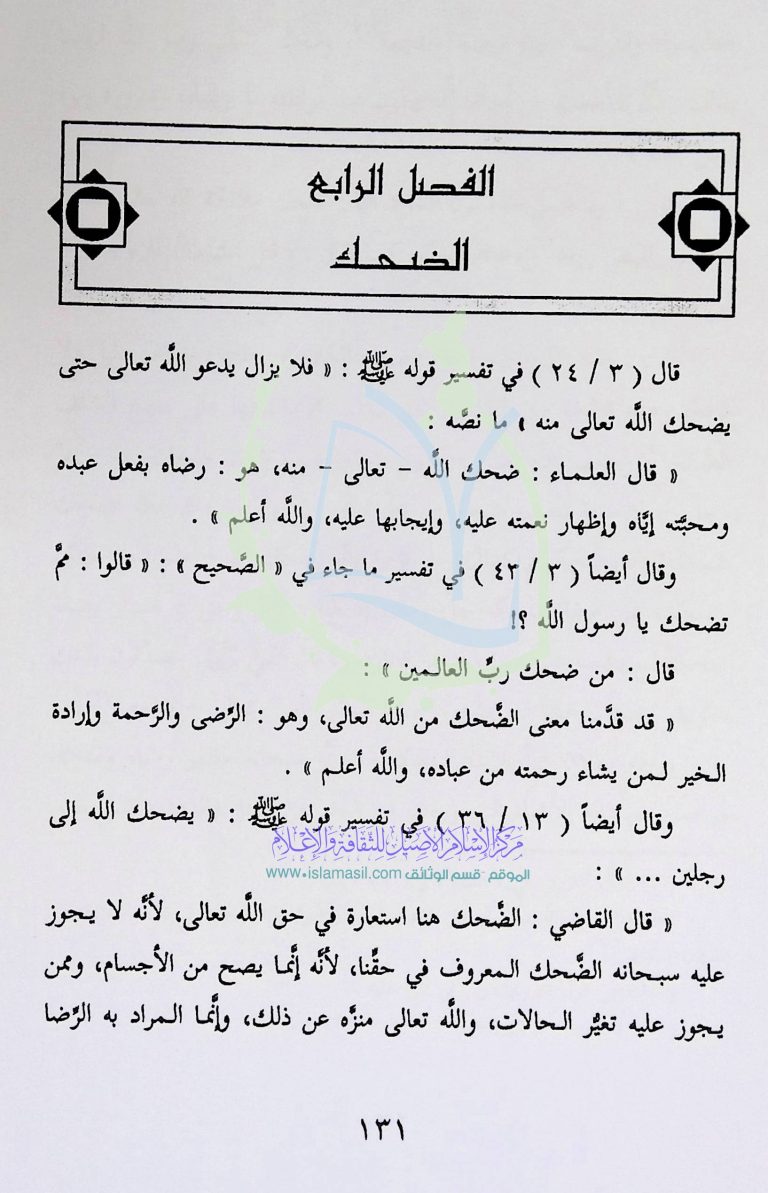 الفصل الرابع
الضحك
قال ( ٣ / ٢٤ ) في تفسير قوله ﷺ : « فلا يزال يدعو اللَّه تعالى حتى
يضحك اللَّه تعالى منه » ما نصَّه :
« قال العلماء : ضحك اللَّه – تعالى – منه، هو : رضاه بفعل عبده
ومحبَّته إيَّاه وإظهار نعمته عليه، وإيجابها عليه، واللَّه أعلم » .
وقال أيضاً ( ٣ / ٤٣ ) في تفسير ما جاء في « الصَّحيح » : « قالوا : ممَّ
تضحك يا رسول اللَّه ؟!
قال : من ضحك ربِّ العالمين » :
« قد قدَّمنا معنى الضَّحك من اللَّه تعالى، وهو : الرِّضى والرَّحمة وإرادة
الخير لمن يشاء رحمته من عباده، واللَّه أعلم » .
وقال أيضاً ( ١٣ / ٣٦ ) في تفسير قوله ﷺ : « يضحك اللَّه إلى
مركز الإسلام الأصيل للثقافة والإعلام
رجلين ... » :
الموقع -قسم الوثائق www.islamasil.com
« قال القاضي : الضَّحك هنا استعارة في حق اللَّه تعالى، لأنَّه لا يجوز
عليه سبحانه الضَّحك المعروف في حقِّنا، لأنَّه إنَّما يصح من الأجسام، وممن
يجوز عليه تغيُّر الحالات، واللَّه تعالى منزَّه عن ذلك، وإنَّما المراد به الرِّضا
١٣١